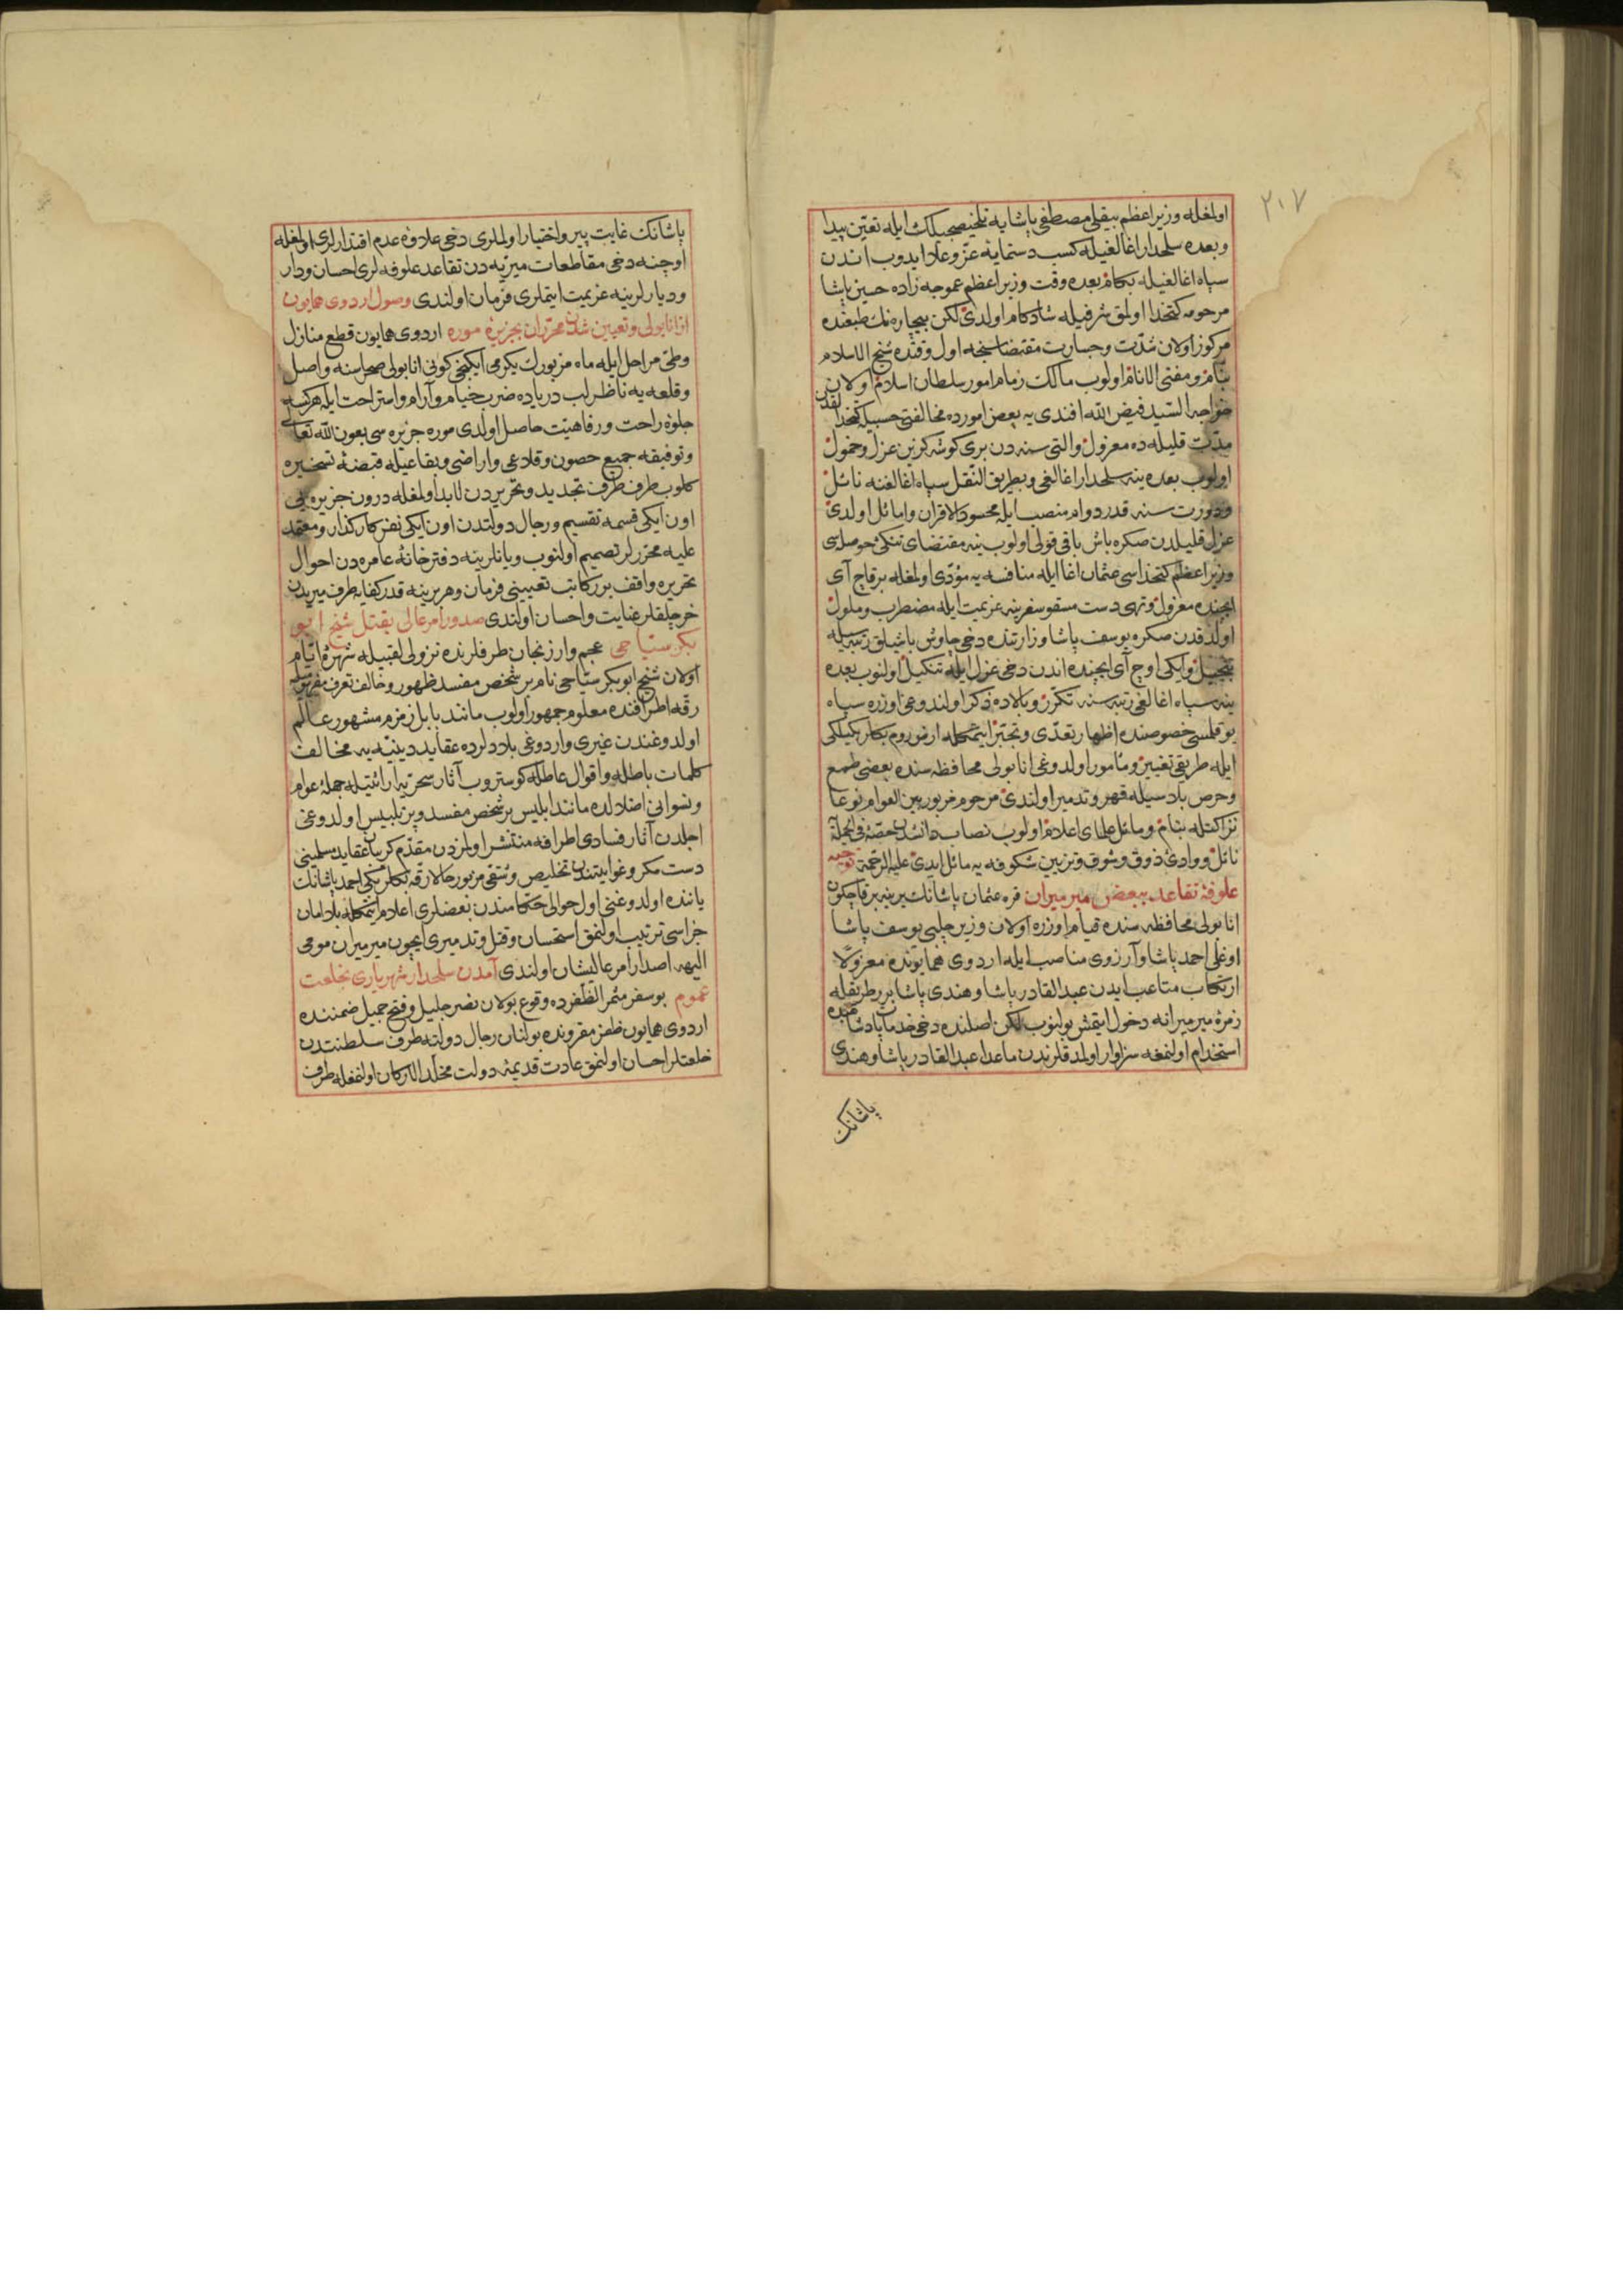 ٢٠٧
اولمغله وزیراعظم بیقلی مصطفی پاشایه تلخیصجیلك ایله تعین پیدا
وبعده سلحدار اغالغیله کسب دستمایهٔ عز وعلا ایدوب اندن
سپاه اغالغیله بکام بعده وقت وزیراعظم عموجه زاده حسین پاشا
مرحومه کتخدا اولمق شرفیله شادکام اولدی لکن بیچاره نك طبعنده
مرکوز اولان شدت وجسارت مقتضاسنجه اول وقتده شیخ الاسلام
بنام ومفتی الانام اولوب مالك زمام امور سلطان اسلام اولان
خواجه السید فیض الله افندی یه بعض امورده مخالفتی حسبیله کتخدالقدن
مدت قلیله ده معزول والتی سنه دن بری کوشه کزین عزل وخمول
اولوب بعده ینه سلحدار اغالغی وبطریق النقل سپاه اغالغنه نائل
ودورت سنه قدر دوام منصب ایله محسود الاقران واماثل اولدی
عزل قلیلدن صکره باش باقی قولی اولوب ینه مقتضای تنکی حوصله سی
وزیر اعظم کتخداسی عثمان اغا ایله منافسه یه مؤدی اولمغله برقاج آی
ایچنده معزول وتهی دست مسقو سفرینه عزیمت ایله مضطرب وملول
اولدقدن صکره یوسف پاشا وزارتنده دخی چاوش باشیلق رتبه سیله
تبجیل وایکی اوچ آی ایچنده اندن دخی عزل ایله تنکیل اولنوب بعده
ینه سپاه اغالغی رتبه سنه تکرر وبالاده ذکر اولندوغی اوزره سپاه
یوقلمسی خصوصنده اظهار تعدی وتجبر ایتمکله ارض روم بکلربکیلکی
ایله طریقی تغییر ومأمور اولدوغی انابولی محافظه سنده بعضی طمع
وحرص بلاسیله قهر وتدمیر اولندی مرحوم مزبور بین العوام نوعا
نزاکتله بنام ومائل علمای اعلام اولوب نصاب دانشدن حصهٔ فی الجمله
نائل ووادیٔ ذوق وشوق وتزیین شکوفه یه مائل ایدی علیه الرحمة توجیه
علوفهٔ تقاعد ببعض میرمیران قره عثمان پاشانك یرینه برقاچ کون
انابولی محافظه سنده قیام اوزره اولان وزیر چلبی یوسف پاشا
اوغلی احمد پاشا وآرزوی مناصب ایله اردوی همایونده معزولا
ارتکاب متاعب ایدن عبدالقادر پاشا وهندی پاشا برر طریقله
زمرهٔ میرمیرانه دخول ایتمش بولنوب لکن اصلنده دخی خدمات پادشاهیده
استخدام اولنمغه سزاوار اولمدقلرندن ماعدا عبدالقادر پاشا وهندی
پاشانك
پاشانك غایت پیر واختیار اولملری دخی علاوهٔ عدم اقتدارلری اولمغله
اوچنه دخی مقاطعات میریه دن تقاعد علوفه لری احسان ودار
ودیارلرینه عزیمت ایتملری فرمان اولندی وصول اردوی همایون
از انابولی وتعیین شدن محرران بجزیرهٔ موره اردوی همایون قطع منازل
وطی مراحل ایله ماه مزبورك یکرمی ایکنجی کونی انابولی صحراسنه واصل
وقلعه یه ناظر لب دریاده ضرب خیام وآرام واستراحت ایله هرکسه
جلوهٔ راحت ورفاهیت حاصل اولدی موره جزیره سی بعون الله تعالی
وتوفیقه جمیع حصون وقلاعی واراضی وبقاعیله قبضهٔ تسخیره
کلوب طرف طرف تجدید وتحریردن لابد اولمغله درون جزیره یی
اون ایکی قسمه تقسیم ورجال دولتدن اون ایکی نفر کارکذار ومعتمد
علیه محررلر تصمیم اولنوب ویانلرینه دفترخانهٔ عامره دن احوال
تحریره واقف برر کاتب تعیینی فرمان وهربرینه قدر کفایه طرف میریدن
خرجلقلر عنایت واحسان اولندی صدور امر عالی بقتل شیخ ابو
بکر سیاحی عجم وارزنجان طرفلرنده نزولی لقبیله شهرهٔ ایام
اولان شیخ ابوبکر سیاحی نام بر شخص مفسد ظهور وخالف تعرف
رقه اطرافنده معلوم جمهور اولوب مانند بابل زمزم مشهور عالم
اولدوغندن غیری واردوغی بلادلرده عقاید دینیه یه مخالف
کلمات باطله واقوال عاطله کوستروب آثار سحریه ارائتیله جملهٔ عوام
ونسوانی اضلالده مانند ابلیس بر شخص مفسد وپر تلبیس اولدوغی
اجلدن آثار فسادی اطرافه منتشر اولمزدن مقدم کریبان عقاید مسلمینی
دست مکر وغوایتندن تخلیص وشقی مزبور حالا رقه بکلربکی احمد پاشانك
یاننده اولدوغنی اول حوالی حکامندن بعضلری اعلام ایتمکله بلا امان
جزاسی ترتیب اولنمق استحسان وقتل وتدمیری ایچون میرمیران مومی
الیهه اصدار امر عالیشان اولندی آمدن سلحدار شهریاری بخلعت
عموم بو سفر مثمر الظفرده وقوع بولان نصر جلیل وفتح جمیل ضمننده
اردوی همایون ظفر مقرونده بولنان رجال دولته طرف سلطنتدن
خلعتلر احسان اولنمق عادت قدیمهٔ دولت مخلد الارکان اولنمغله طرف